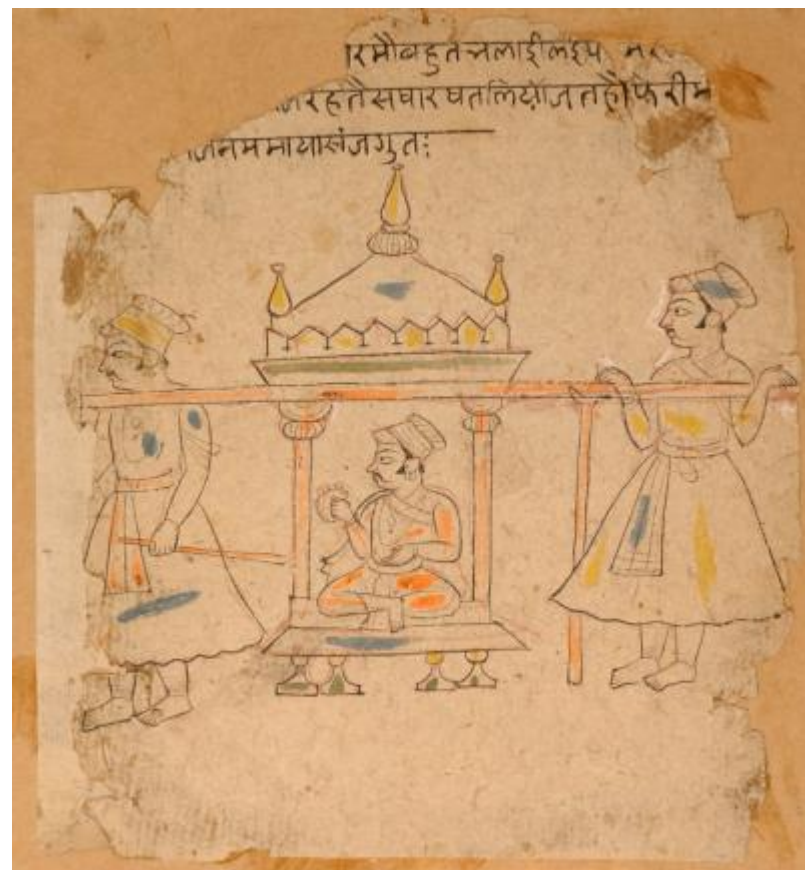 रमौबहुतभलाईलइय
रहतैसघारघतलियौजतहौफेरीम
जनममायासंजगुतः